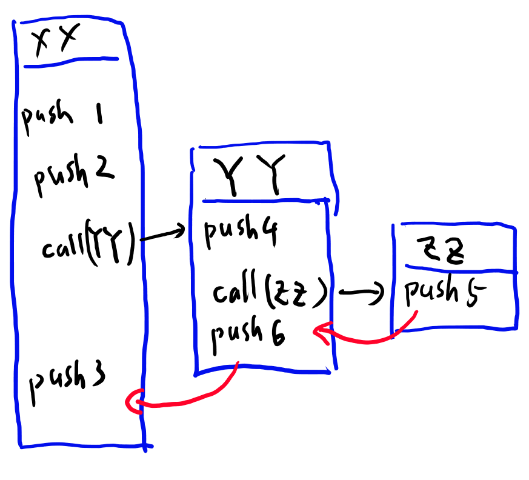 XX
push 1
push 2
call(YY)
push 3
YY
push 4
call(ZZ)
push 6
ZZ
push 5